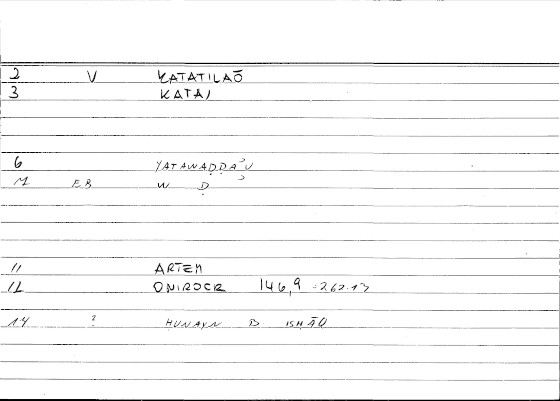 2 V KATATILAŌ
3 KATAJ
6 YATAWAḌḌAʾU
M E.B W Ḍ ʾ
11 ARTEM
12 ONIROCR 146,9 =262.13
14 ? HUNAYN B ISHĀQ